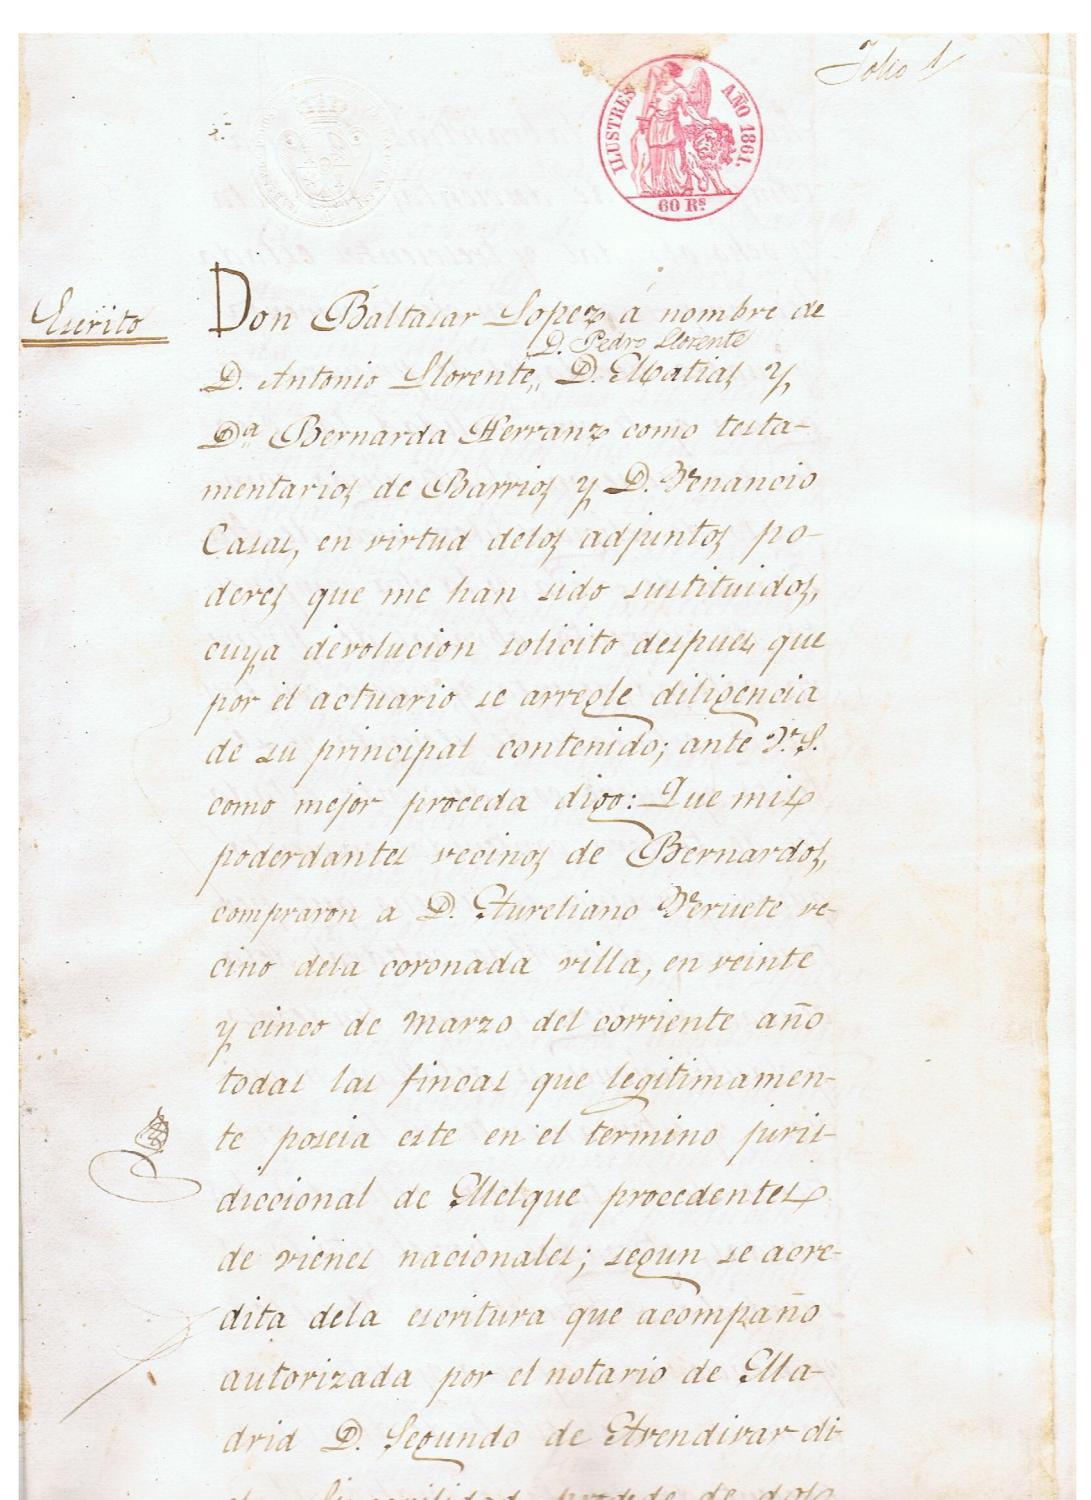 Folio 1
ILUSTRES
AÑO 1861.
60 Rs
Escrito
Don Baltasar Lopez á nombre de
D. Pedro Llorente
D. Antonio Llorente,, D. Matias y
Da Bernarda Herranz como testa-
mentarios de Barrios y D. Venancio
Casas, en virtud delos adjuntos po-
deres que me han sido sustituidos,
cuya devolucion solicito despues que
por el actuario se arregle diligencia
de su principal contenido; ante V.S.
como mejor proceda digo: Que mis
poderdantes vecinos de Bernardos,
compraron a D. Aureliano Veruete ve-
cino dela coronada villa, en veinte
y cinco de marzo del corriente año
todas las fincas que legitimamen-
te poseia este en el termino juris-
diccional de Melque procedentes
de vienes nacionales; segun se acre-
dita dela escritura que acompaño
autorizada por el notario de Ma-
drid D. Segundo de Atrendirar di-
procede de dolo